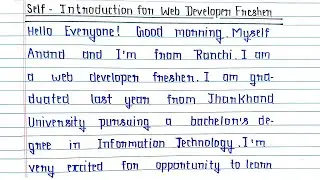 Self - Introduction for Web Developer Fresher
Hello Everyone! Good morning. Myself
Anand and I'm from Ranchi. I am
a web developer fresher. I am gra-
duated last year from Jharkhand
University pursuing a bachelor's de-
gree in Information Technology. I'm
very excited for opportunity to learn